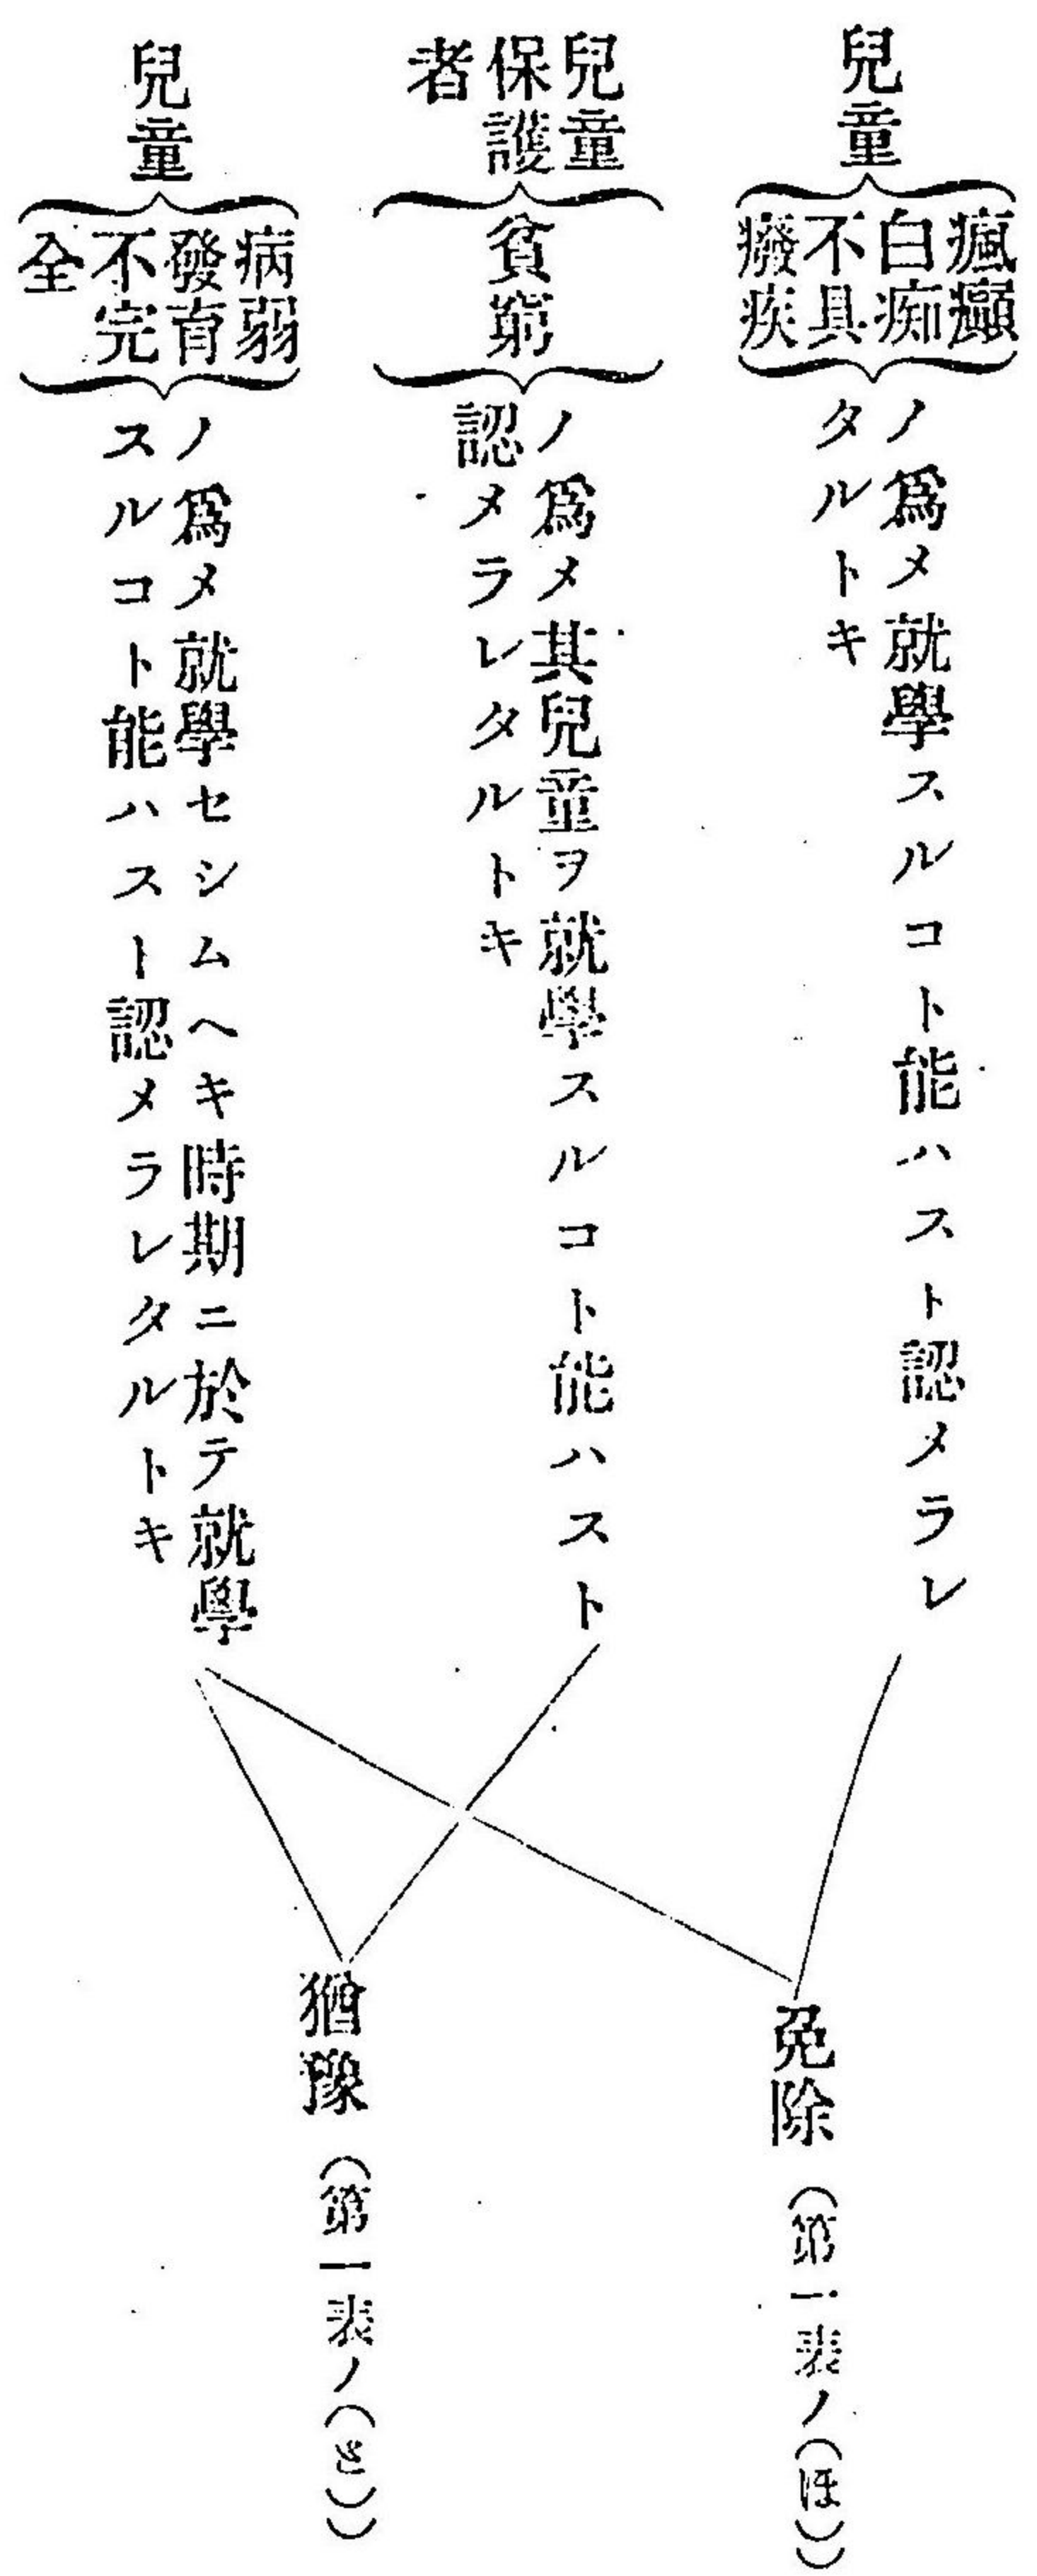 兒童
瘋癲
白痴
不具
癈疾
ノ爲メ就學スルコト能ハスト認メラレ
タルトキ
兒童
保護
者
貧窮
ノ爲メ其兒童ヲ就學スルコト能ハスト
認メラレタルトキ
兒童
病弱
發育
不完
全
ノ爲メ就學セシムヘキ時期ニ於テ就學
スルコト能ハスト認メラレタルトキ
免除（第一表ノ(ほ)）
猶豫（第一表ノ(と)）